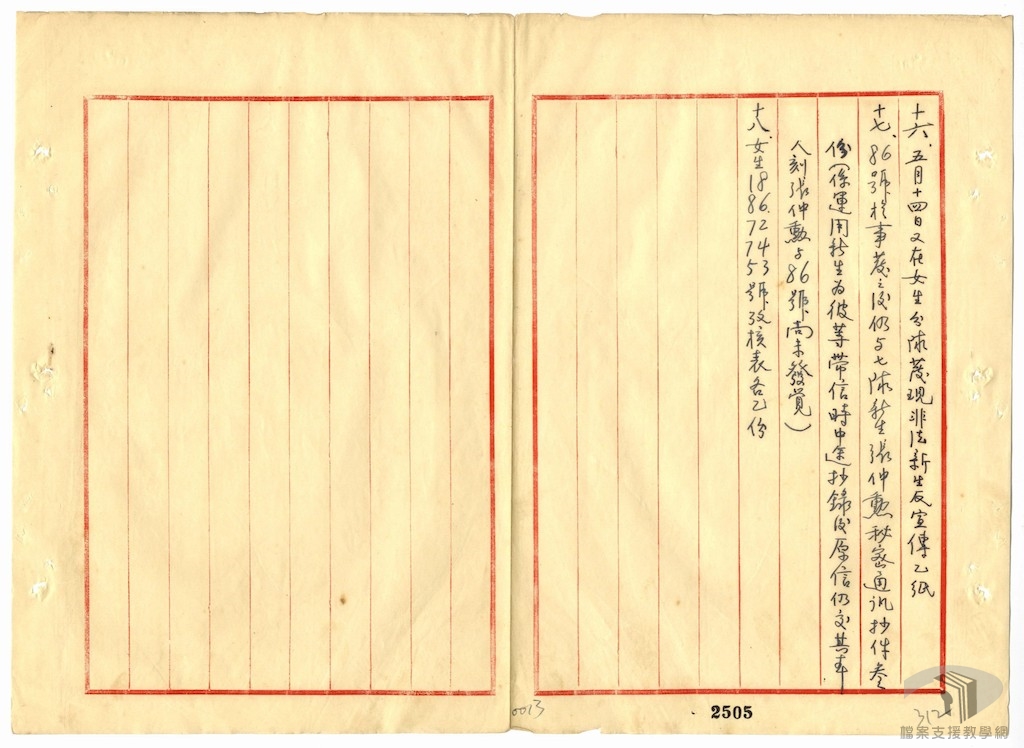 十六、五月十四日又在女生分隊發現非法新生反宣傳乙紙
十七、86號於事發之後仍与七隊新生張仲勲秘密通訊抄件叁
份(係運用新生為彼等帶信時中途抄錄後原信仍交其本
人刻張仲勲与86號尚未發覺)
十八、女生18 86. 72 74 43 75號攷核表各乙份
0013
2505
312
檔案支援教學網